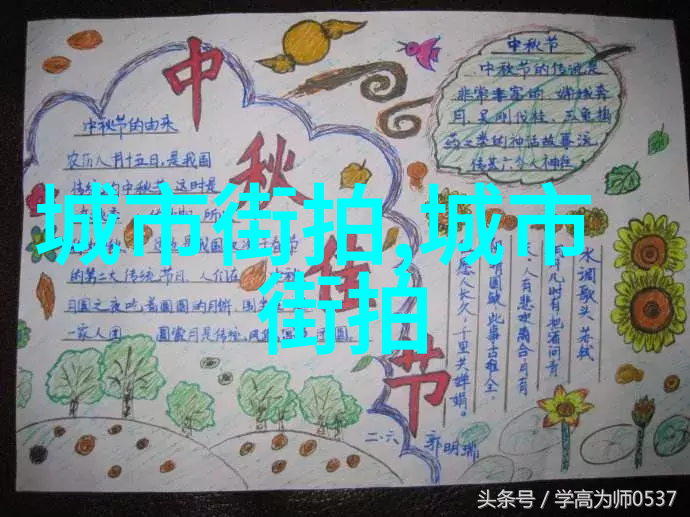 中秋佳节
中秋节的由来
农历八月十五日,是我国
传统的中秋节,这时是
的第二大传统节日,人们在 中秋
月圆之夜吃着圆圆的月饼,围坐
一家人团 圆赏月是传统
中秋节
中秋节的传说是
非常丰富的,嫦娥奔
月,吴刚伐桂,玉兔捣
药之类的神话故事流
传甚
水调歌头 苏轼
几时有把酒问青
人有悲欢离合月有
阴晴圆缺,此事古难全。
愿人长久,千里共婵娟。
二.六 郭明瑞
城市街拍,城市
街拍
头条号/学高为师0537